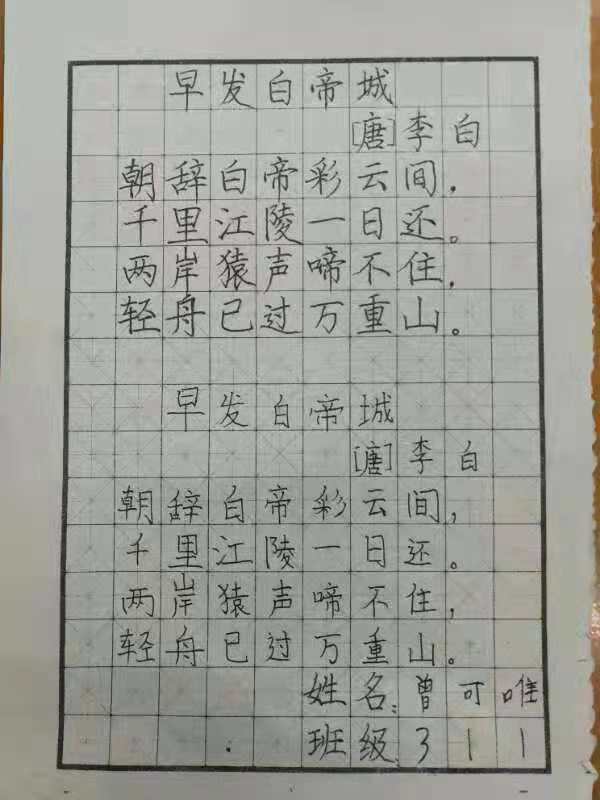 早发白帝城
[唐]李白
朝辞白帝彩云间，
千里江陵一日还。
两岸猿声啼不住，
轻舟已过万重山。
早发白帝城
[唐]李白
朝辞白帝彩云间，
千里江陵一日还。
两岸猿声啼不住，
轻舟已过万重山。
姓名：曾可唯
班级 311